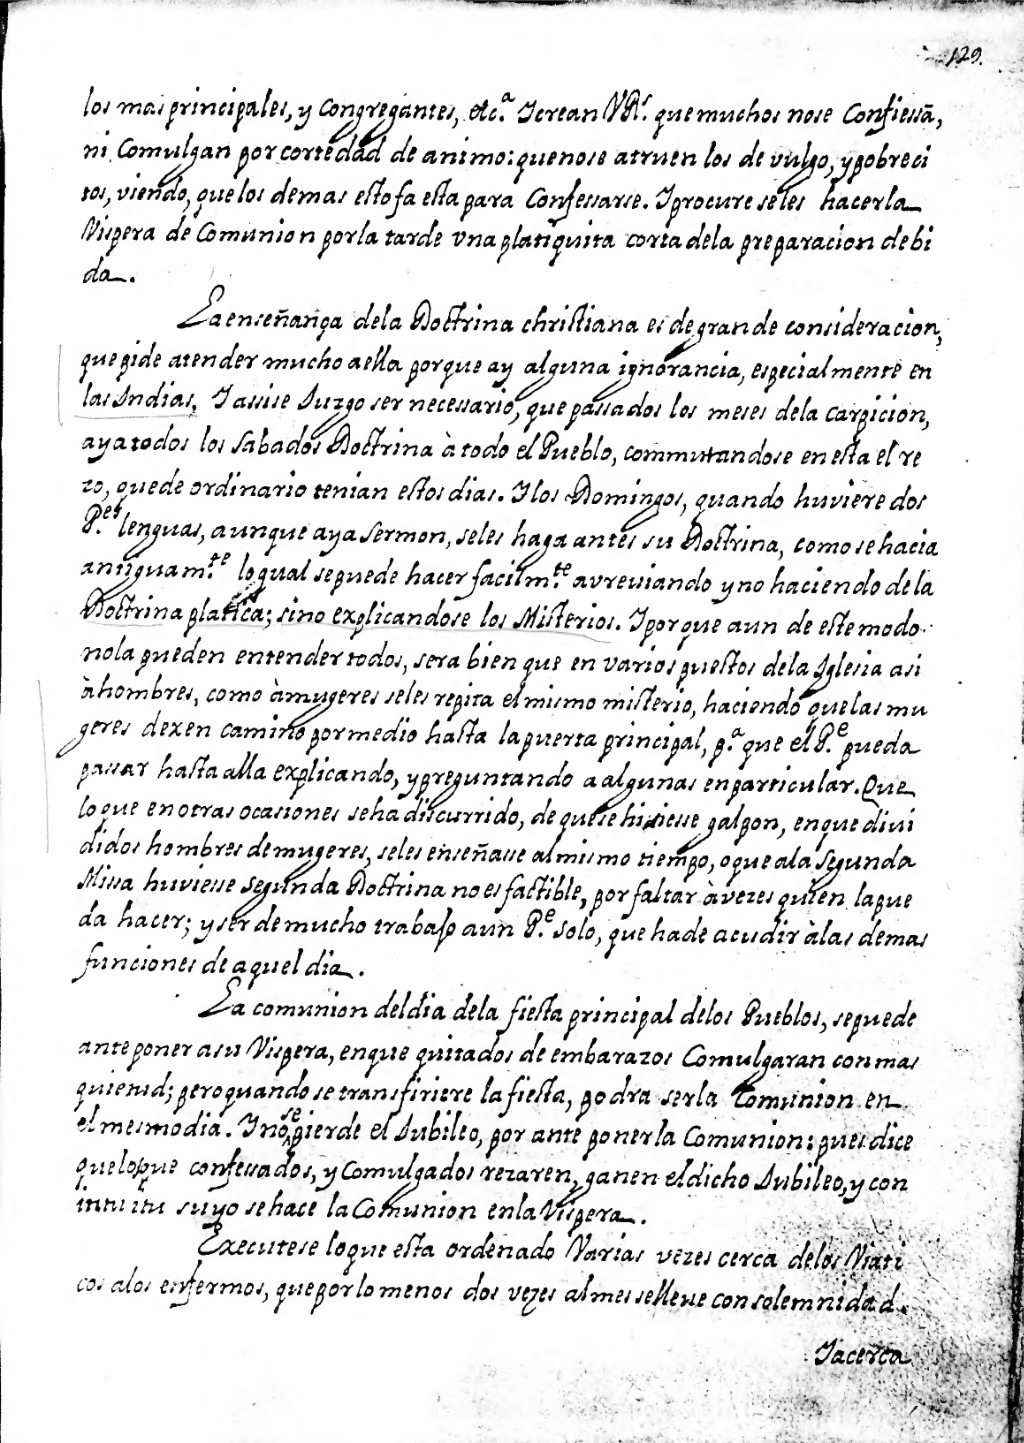 129.
los mas principales, y Congregantes, etc.ª Y crean V.Rˢ. que muchos nose Confiessã,
ni Comulgan por cortedad de animo: que nose atruen los de vulgo, y pobreci
tos, viendo, que los demas estofa esta para Confessarse. Y procureseles hacerla
Vispera de Comunion por la tarde vna platiquita corta dela preparacion debi
da.
La enseñança dela Doctrina christiana es de grande consideracion,
que pide atender mucho a ella porque ay alguna ignorancia, especialmente en
las Indias. Y assise Juzgo ser necessario, que passados los meses dela carpicion,
aya todos los Sabados Doctrina à todo el Pueblo, commutandose en esta el re
zo, que de ordinario tenian estos dias. Y los Domingos, quando huviere dos
P.ᵉˢ lenguas, aunque aya Sermon, seles haga antes su Doctrina, como se hacia
antiguam.ᵗᵉ lo qual sepuede hacer facilm.ᵗᵉ avreviando y no haciendo de la
Doctrina platica; sino explicandose los Misterios. Y porque aun de este modo
nola pueden entender todos, sera bien que en varios puestos dela Iglesia asi
à hombres, como à mugeres seles repita el mismo misterio, haciendo que las mu
geres dexen camino por medio hasta la puerta principal, p.ª que el P.ᵉ pueda
passar hasta alla explicando, y preguntando a algunas en particular. Que
lo que en otras ocasiones se ha discurrido, de que se hiziesse galpon, en que divi
didos hombres de mugeres, seles enseñasse al mismo tiempo, o que ala Segunda
Missa huviesse Segunda Doctrina no es factible, por faltar à vezes quien la pue
da hacer; y ser de mucho trabajo a un P.ᵉ solo, que ha de acudir à las demas
funciones de aquel dia.
La comunion del dia dela fiesta principal delos Pueblos, sepuede
anteponer a su Vispera, en que quitados de embarazos Comulgaran con mas
quietud; pero quando se transfiriere la fiesta, podra ser la Comunion en
el mesmo dia. Y no se pierde el Jubileo, por anteponer la Comunion: pues dice
que los que confessados, y Comulgados rezaren, ganen el dicho Jubileo, y con
intuitu suyo se hace la Comunion en la Vispera.
Executese lo que esta ordenado Varias vezes cerca delos Viati
cos a los enfermos, que por lo menos dos vezes al mes se lleve con solemnidad.
Y acerca